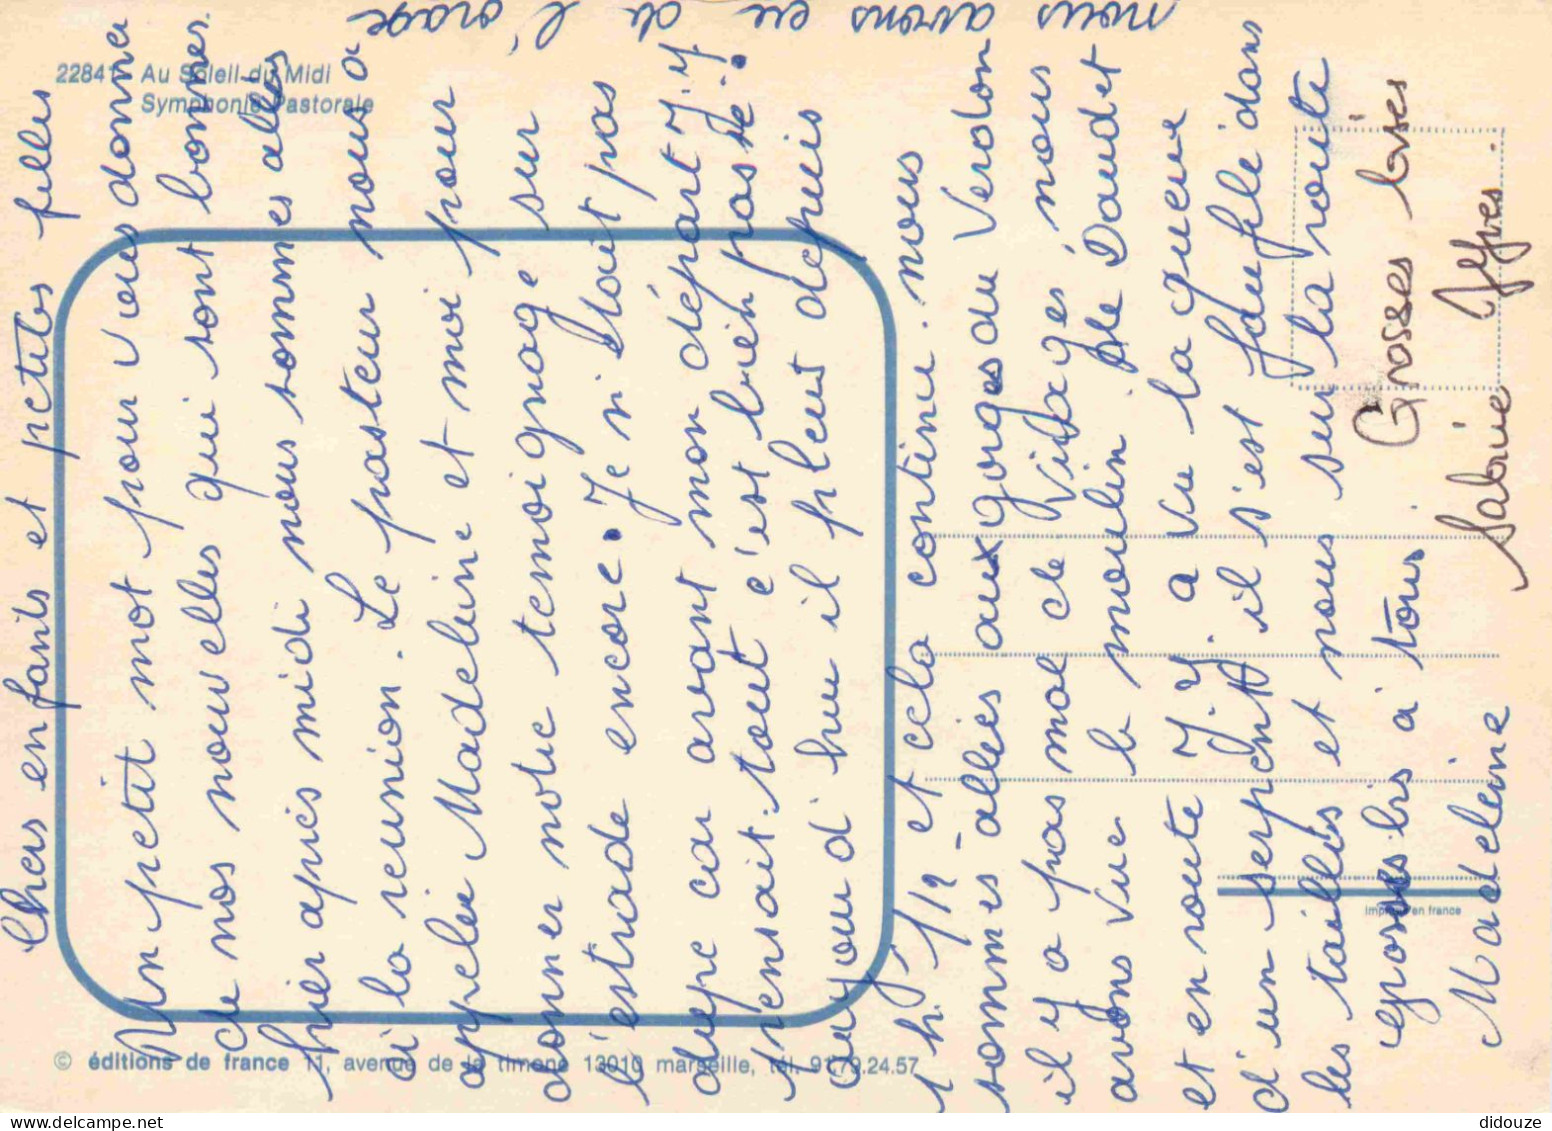 Chers enfants et petites filles
Un petit mot pour vous donner
de nos nouvelles qui sont bonnes.
hier après midi nous sommes allés
à la reunion. Le pasteur nous a
appelés Madeleine et moi pour
donner notre temoignage sur
l'estrade encore. Je n'étais pas
car avant mon départ J.Y
pensait. tout c'est bien passé.
aujourd'hui il pleut depuis
1 h 1/2 et cela continue. nous
sommes allés aux gorges du Verdon
il y a pas mal de Virages, nous
avons vue le moulin de Daudet
et en route J.Y. a vu la queue
d'un serpent il s'est faufilé dans
les taillés et nous sur la route
à tous Grosses bises
Madeleine Sabrié Yves.
nous avons eu de l'orage
22841 - Au Soleil du Midi
Symphonie Pastorale
© éditions de france 11, avenue de la timone 13010 marseille, tél. 91.79.24.57
imprimé en france
didouze